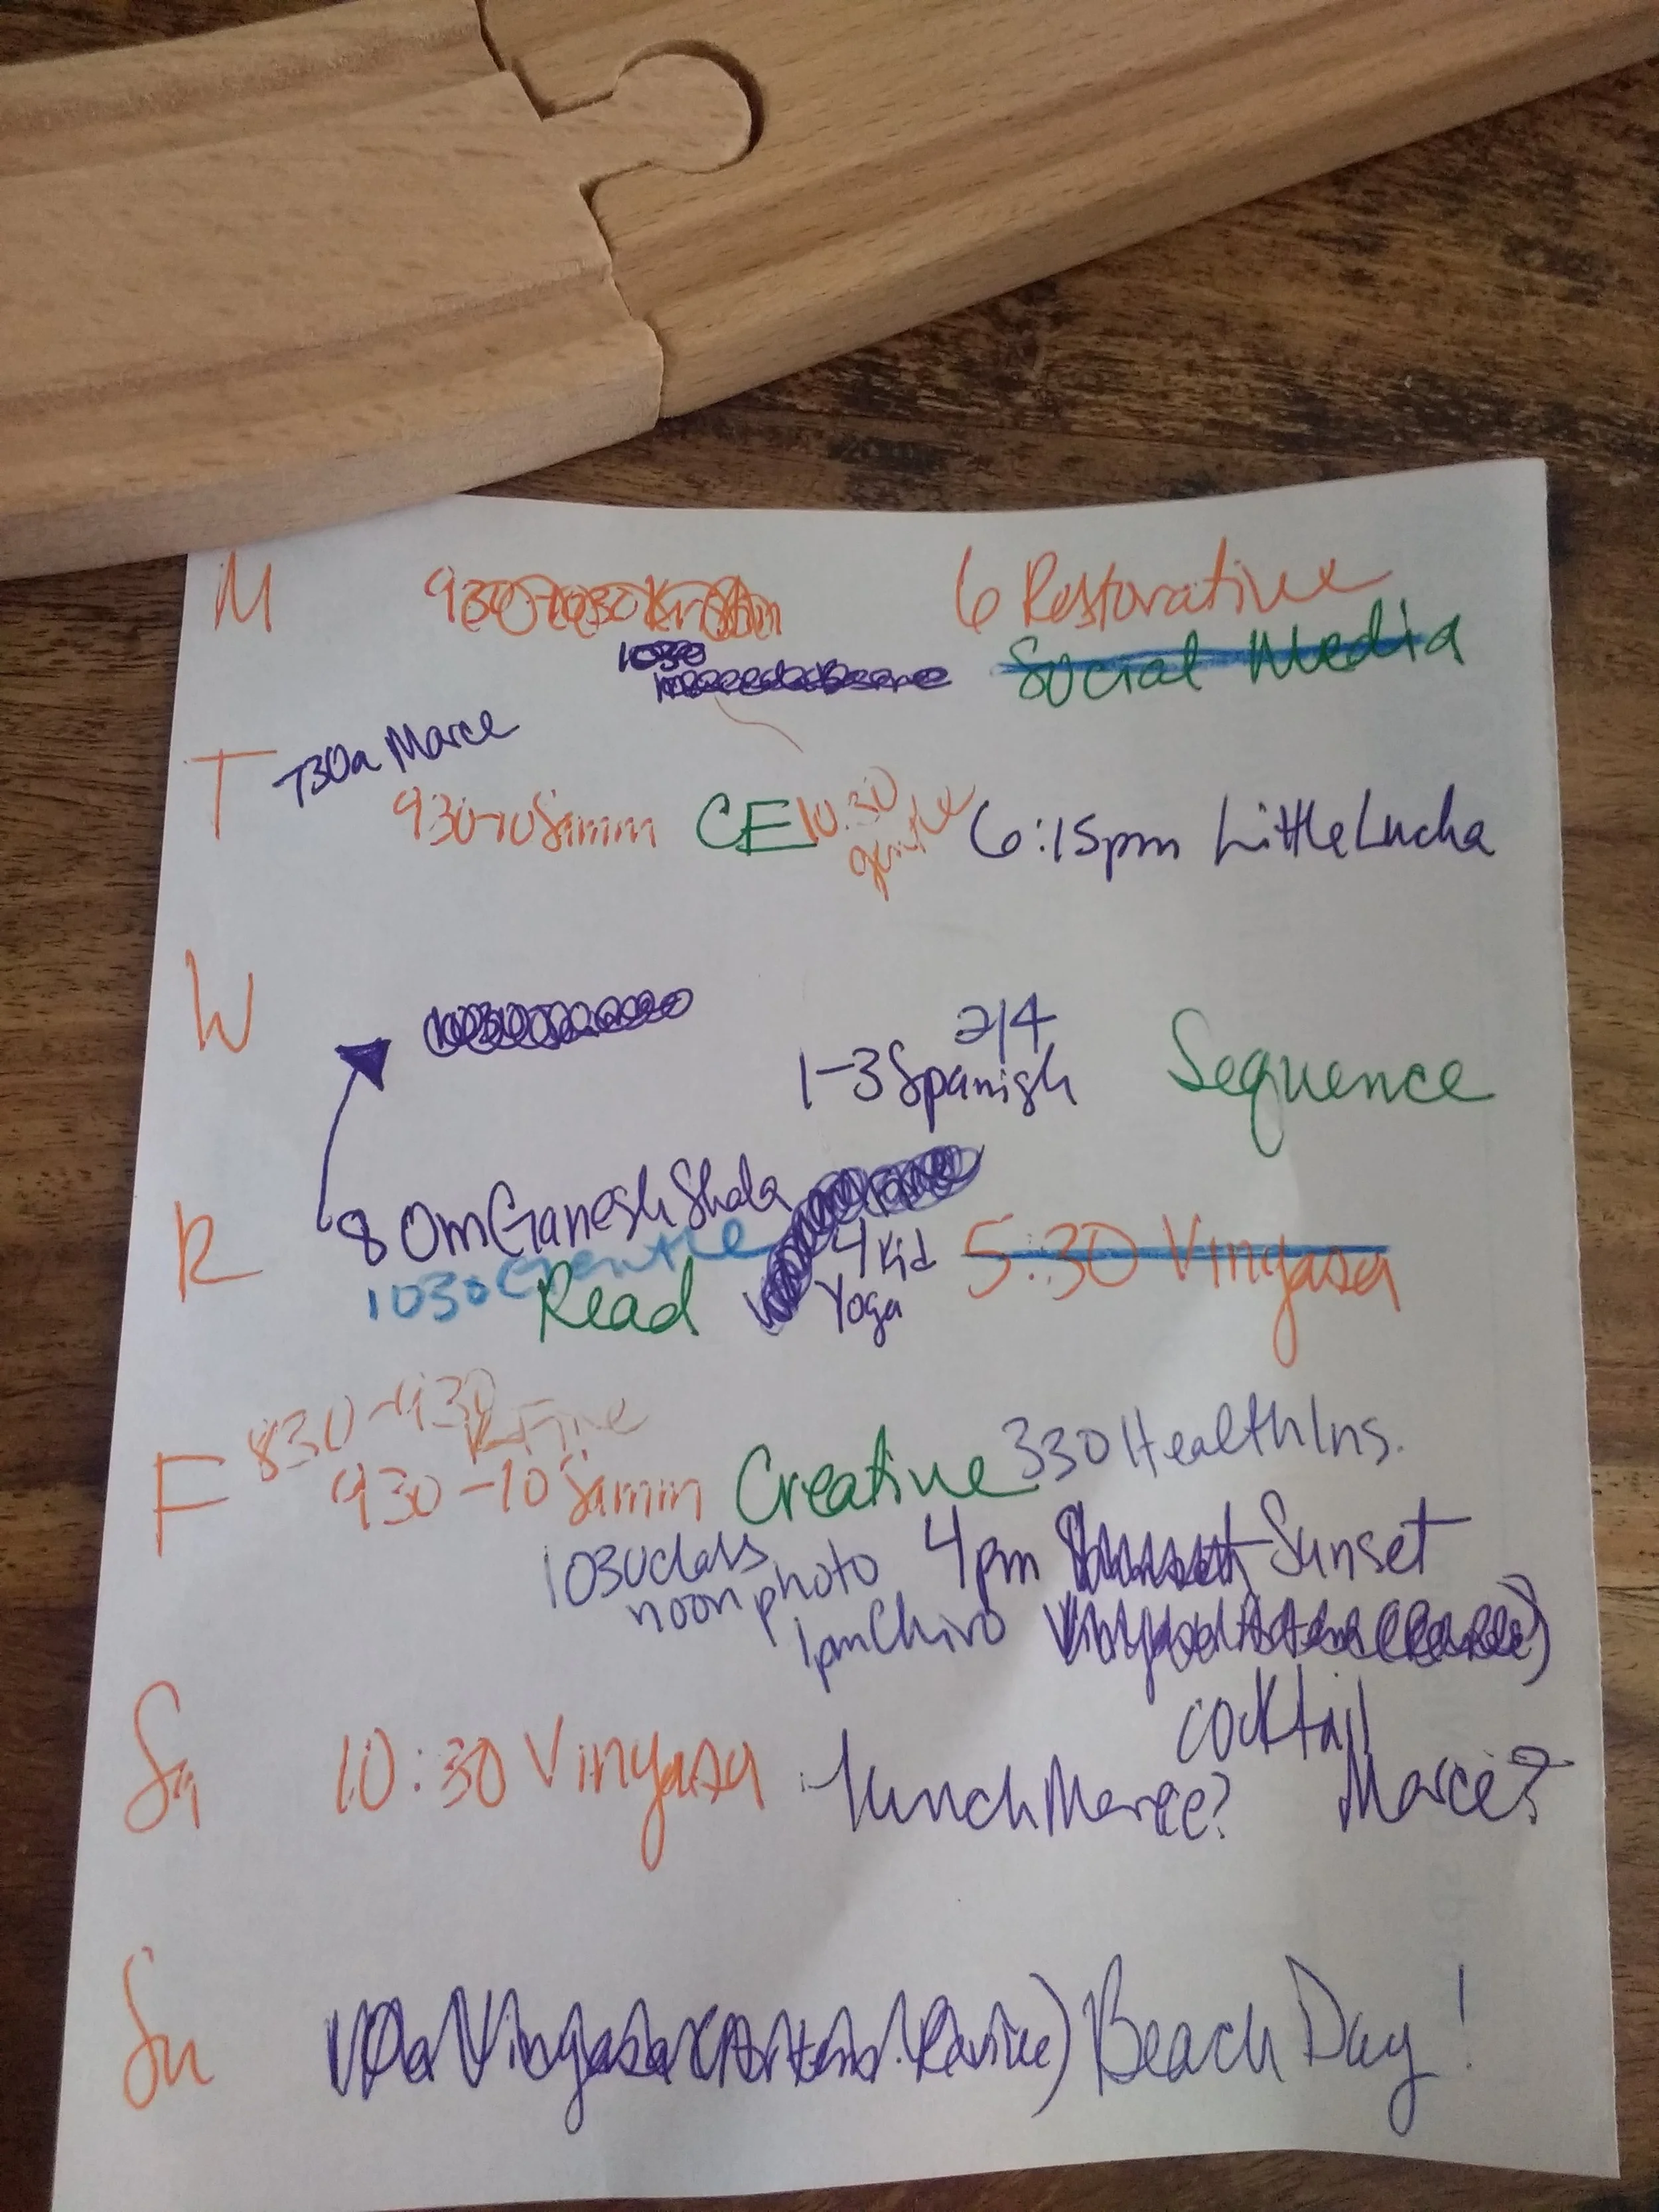 M 6 Restorative
Social Media
T 730a Marce
930-10 Swimm CE 10:30 gentle 6:15pm Little Lucha
W
2/4
1-3 Spanish Sequence
R 8 Om Ganesh Shala
1030 Gentle 4 Kid Yoga 5:30 Vinyasa
Read
F 830-930
930-10 Swimm Creative 330 Health Ins.
1030 class 4pm Sunset
noon photo
1pm Chiro
cocktail
Sa 10:30 Vinyasa lunch Marce? Marce?
Su Beach Day!